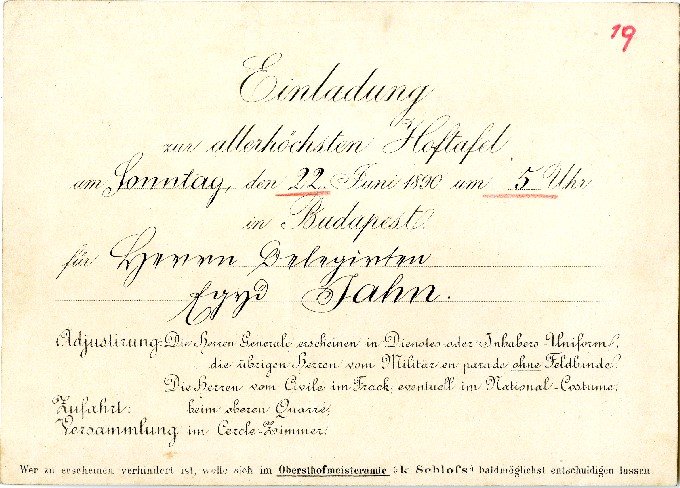 19
Einladung
zur allerhöchsten Hoftafel
am Sonntag, den 22. Juni 1890 um 5 Uhr
in Budapest.
für Herrn Delegirten
Egyd Jahn.
Adjustirung: Die Herren Generale erscheinen in Dienstes oder Inhabers-Uniform,
die übrigen Herren vom Militär en parade ohne Feldbinde.
Die Herren vom Civile im Frack, eventuell im National-Costume.
Zufahrt: beim oberen Quarré.
Versammlung im Cercle-Zimmer.
Wer zu erscheinen verhindert ist, wolle sich im Obersthofmeisteramte (k. Schloſs) baldmöglichst entschuldigen lassen.